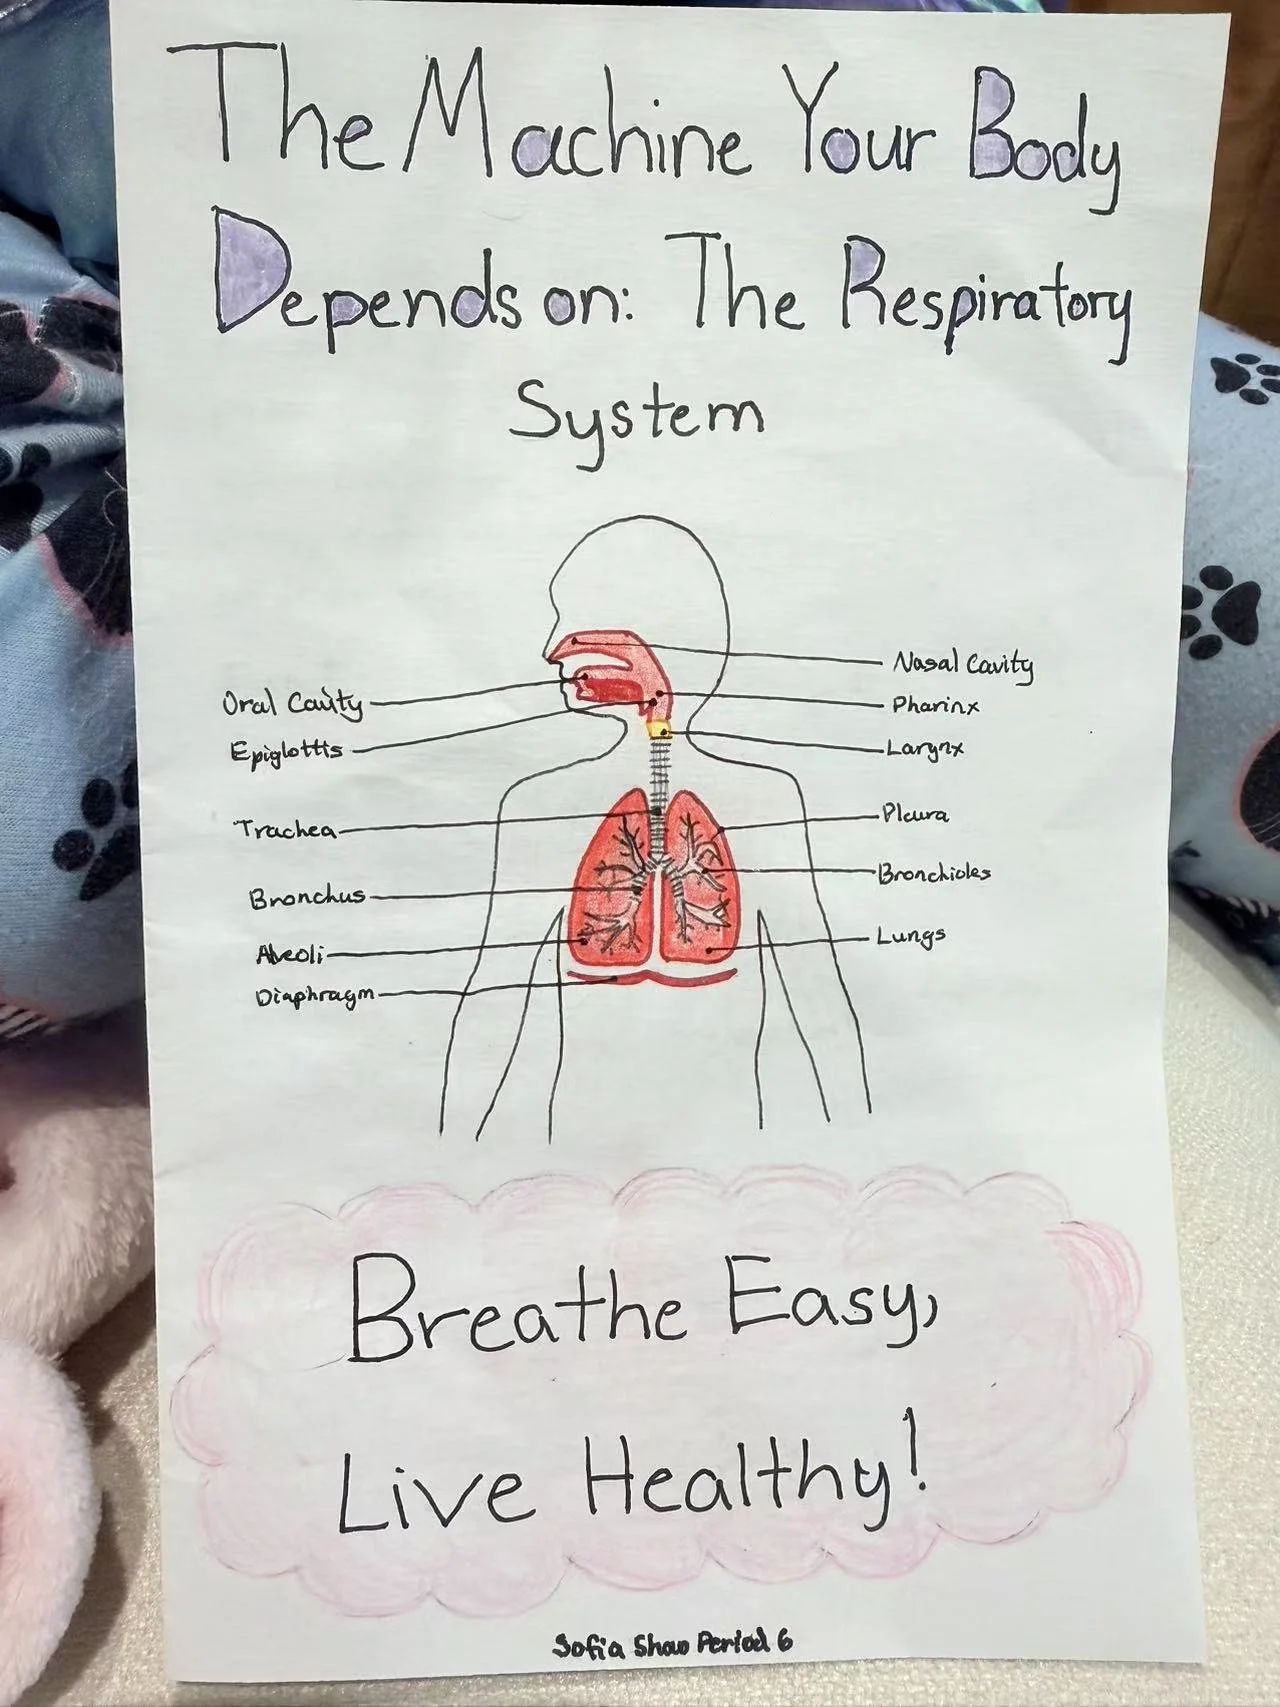 The Machine Your Body
Depends on: The Respiratory
System
Nasal Cavity
Oral Cavity
Pharinx
Epiglottis
Larynx
Trachea
Pleura
Bronchus
Bronchioles
Alveoli
Lungs
Diaphragm
Breathe Easy,
Live Healthy!
Sofia Shao Period 6